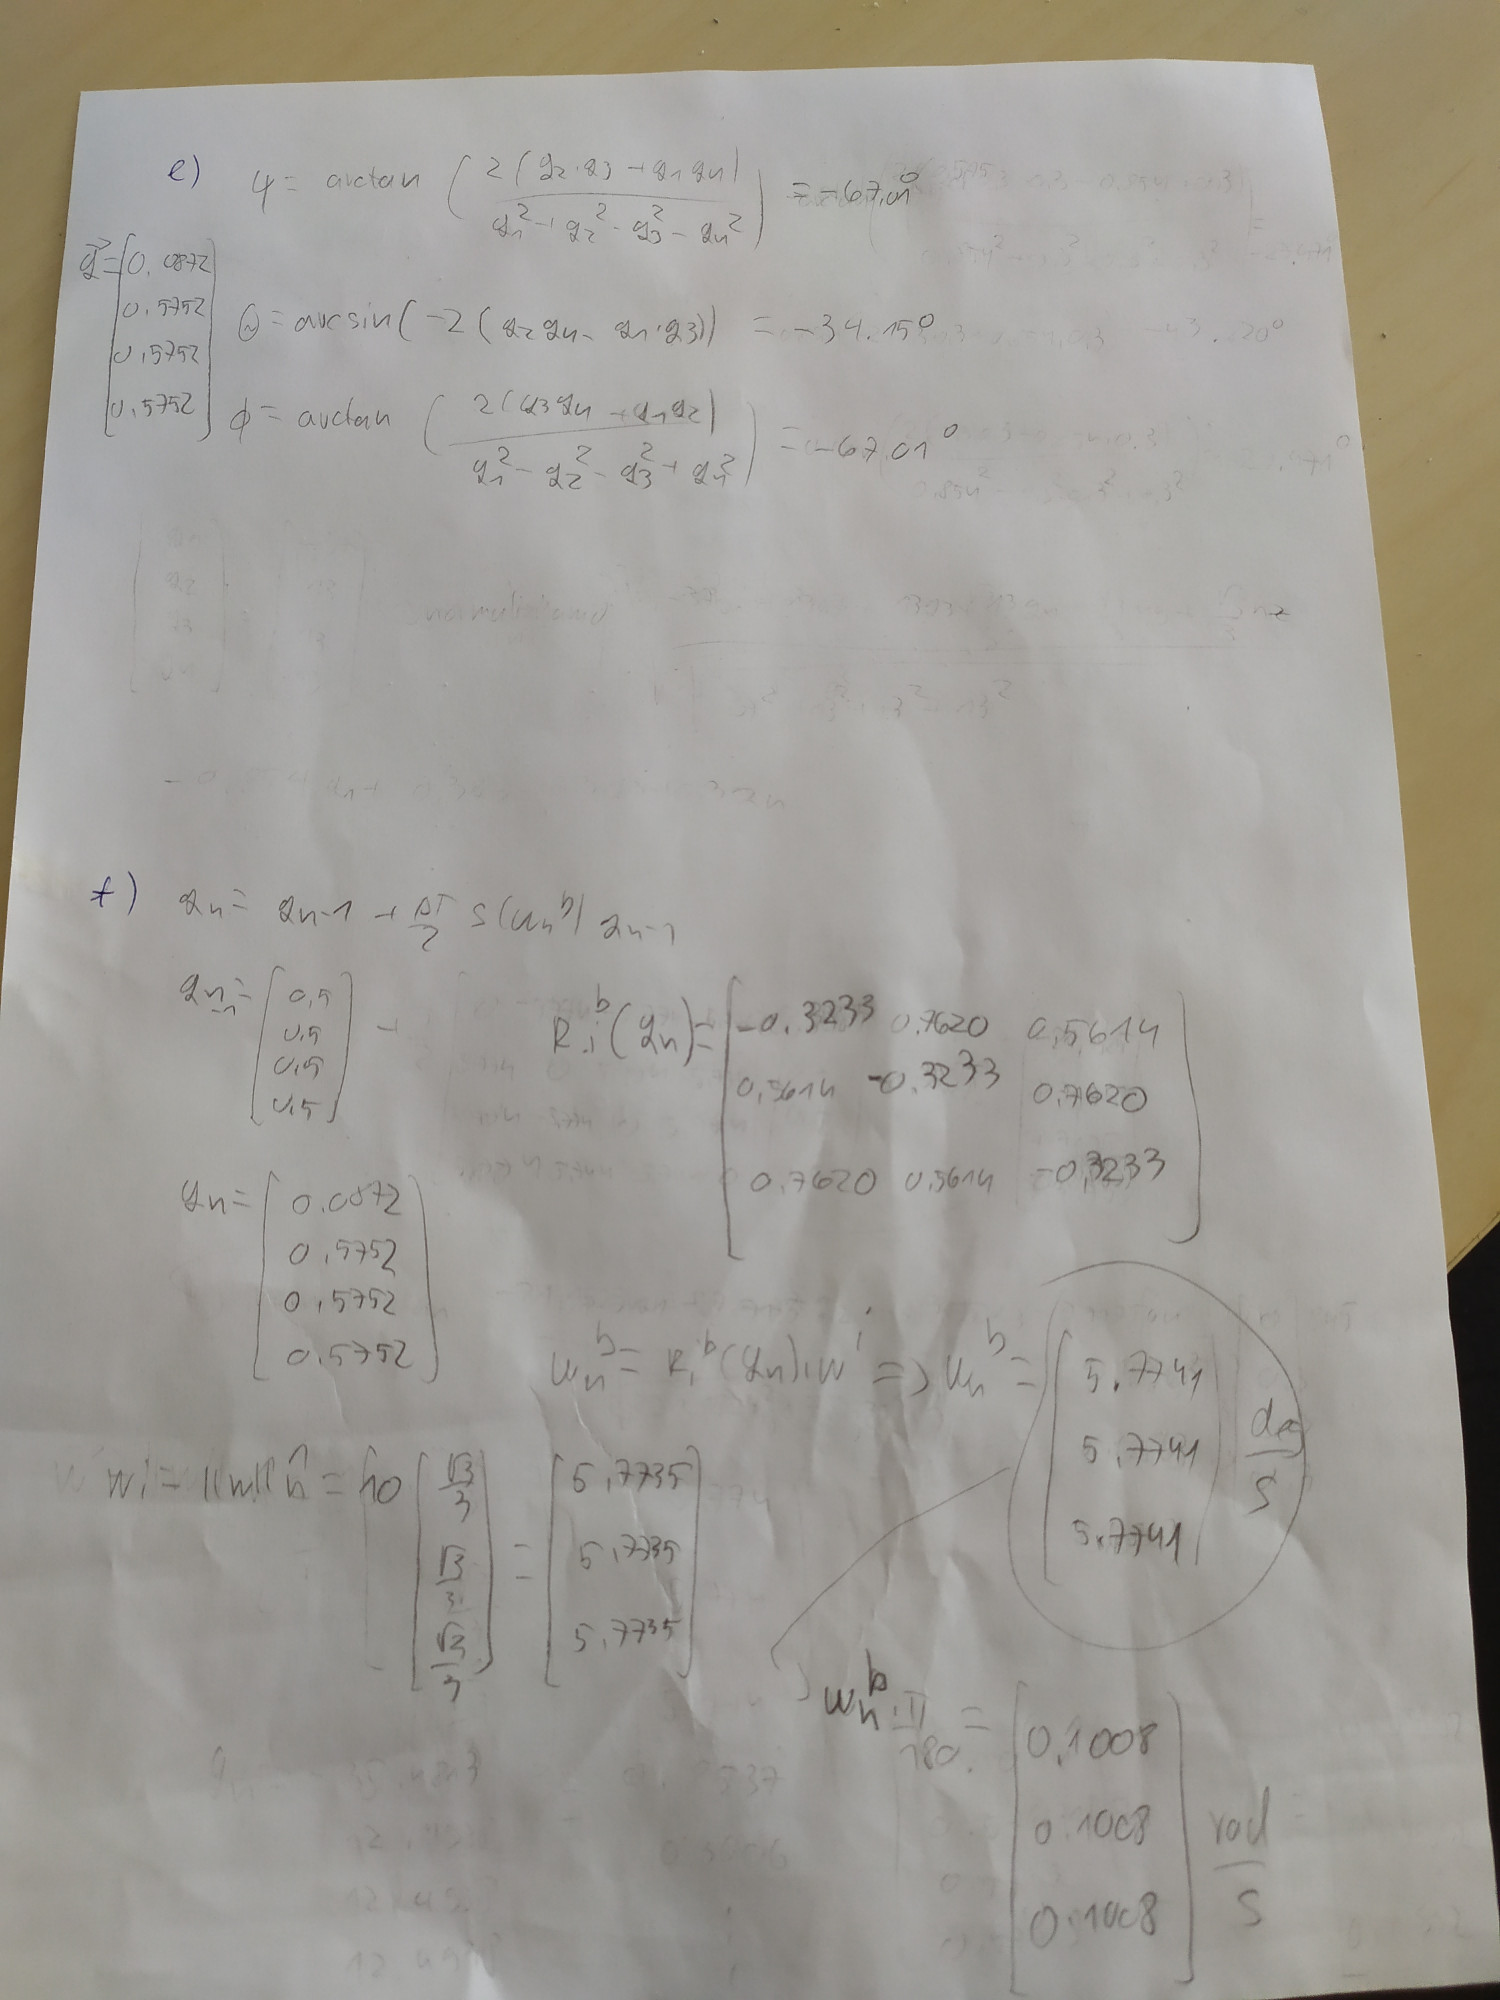 e) ψ = arctan ( 2(q2·q3 + q1q4) / q1² + q2² - q3² - q4² ) = -67.01°
q⃗ = [0.0872
0.5752
0.5752
0.5752]
Θ = arcsin(-2(q2q4 - q1·q3)) = -34.15°
ϕ = arctan ( 2(q3q4 + q1q2) / q1² - q2² - q3² + q4² ) = -67.01°
f) qn = qn-1 + ΔT/2 S(wn^b) qn-1
qn-1 = [0,5
0,5
0,5
0,5]
Ri^b(qn) = [-0.3233 0.7620 0.5614
0.5614 -0.3233 0.7620
0.7620 0.5614 -0.3233]
qn = [0.0872
0.5752
0.5752
0.5752]
wn^b = Ri^b(qn)·w^i => wn^b = [5.7741
5.7741
5.7741] deg/s
wi = ||w|| n̂ = 10 [√3/3
√3/3
√3/3] = [5.7735
5.7735
5.7735]
wn^b · π/180 = [0.1008
0.1008
0.1008] rad/s